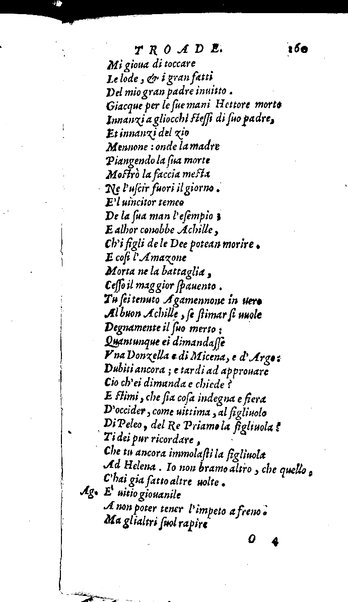 TROADE. 160
Mi gioua di toccare
Le lode, & i gran fatti
Del mio gran padre inuitto.
Giacque per le sue mani Hettore morto
Innanzi a gliocchi stessi di suo padre,
Et innanzi del zio
Mennone: onde la madre
Piangendo la sua morte
Mostrò la faccia mesta
Ne l'uscir fuori il giorno.
E'l uincitor temeo
De la sua man l'esempio;
E alhor conobbe Achille,
Ch'i figli de le Dee potean morire.
E cosi l'Amazone
Morta ne la battaglia,
Cesso il maggior spauento.
Tu sei tenuto Agamennone in uero
Al buon Achille, se stimar si uuole
Degnamente il suo merto:
Quantunque ei dimandasse
Vna Donzella e di Micena, e d'Argo:
Dubiti ancora; e tardi ad approuare
Cio ch'ei dimanda e chiede?
E stimi, che sia cosa indegna e fiera
D'occider, come uittima, al figliuolo
Di Peleo, del Re Priamo la figliuola?
Ti dei pur ricordare,
Che tu ancora immolasti la figliuola
Ad Helena. Io non bramo altro, che quello,
C'hai gia fatto altre uolte.
Ag. E' uitio giouanile
A non poter tener l'impeto a freno:
Ma gli altri suol rapire
O 4